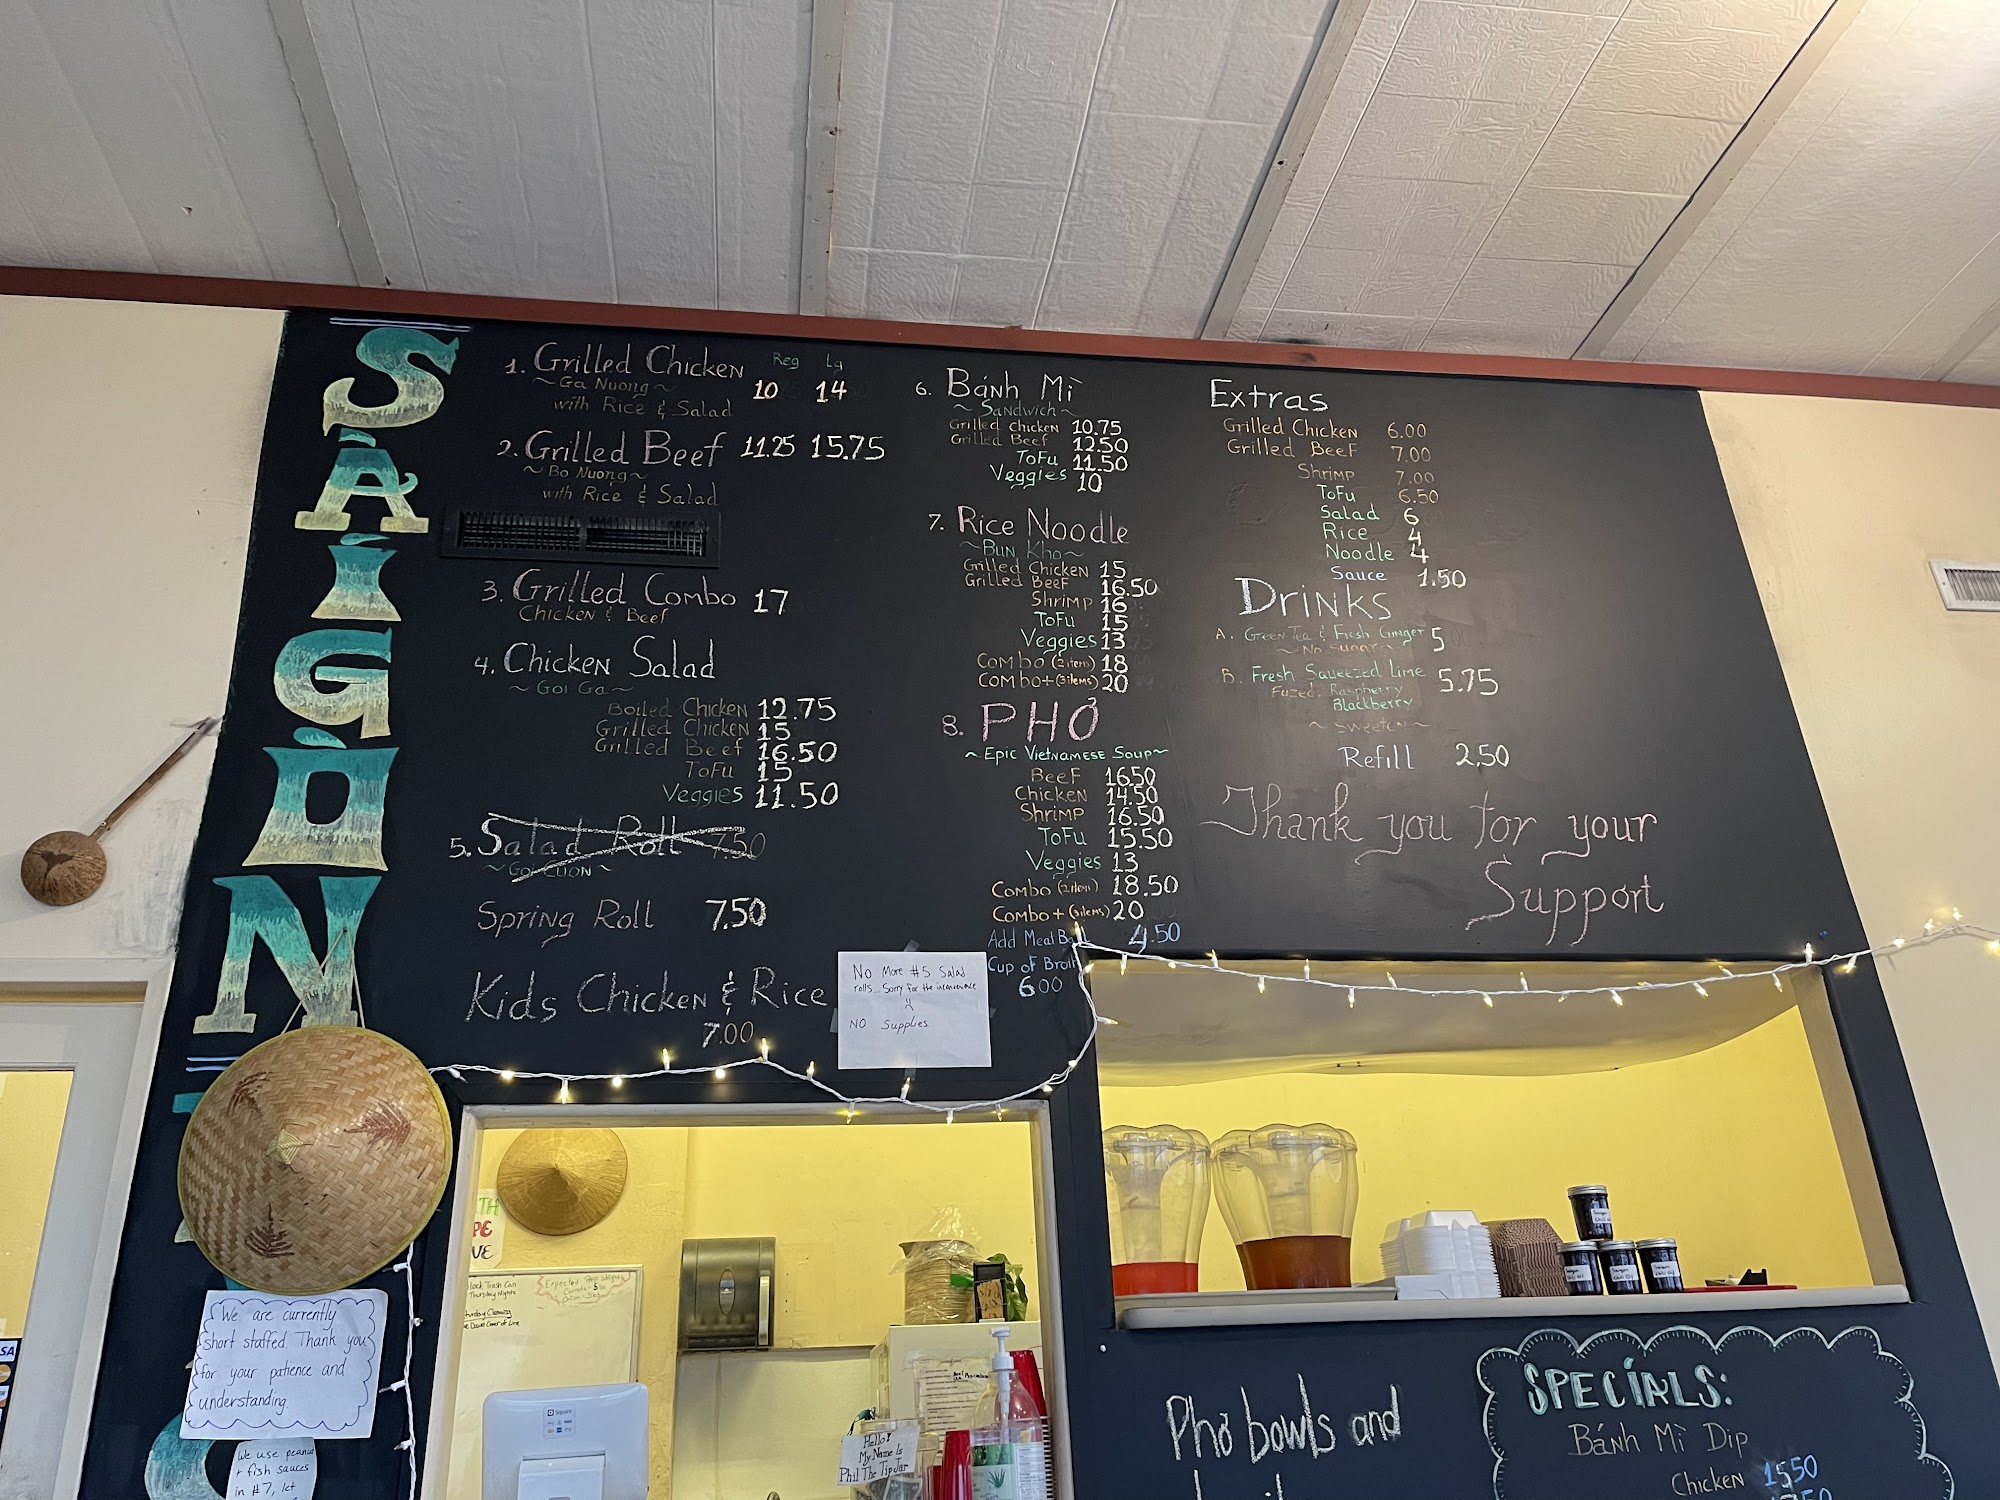 SAIGON
1. Grilled Chicken Reg Lg
~Ga Nuong~ 10 14
with Rice & Salad
2. Grilled Beef 11.25 15.75
~Bo Nuong~
with Rice & Salad
3. Grilled Combo 17
Chicken & Beef
4. Chicken Salad
~Goi Ga~
Boiled Chicken 12.75
Grilled Chicken 15
Grilled Beef 16.50
Tofu 15
Veggies 11.50
5. Salad Roll 7.50
~Goi Cuon~
Spring Roll 7.50
Kids Chicken & Rice
7.00
6. Bánh Mì
~Sandwich~
Grilled Chicken 10.75
Grilled Beef 12.50
Tofu 11.50
Veggies 10
7. Rice Noodle
~Bun Kho~
Grilled Chicken 15
Grilled Beef 16.50
Shrimp 16
Tofu 15
Veggies 13
Combo (2 items) 18
Combo+ (3 items) 20
8. PHỞ
~Epic Vietnamese Soup~
Beef 16.50
Chicken 14.50
Shrimp 16.50
Tofu 15.50
Veggies 13
Combo (2 items) 18.50
Combo+ (3 items) 20
Add Meat Ball 4.50
Cup of Broth
6.00
Extras
Grilled Chicken 6.00
Grilled Beef 7.00
Shrimp 7.00
Tofu 6.50
Salad 6
Rice 4
Noodle 4
Sauce 1.50
Drinks
A. Green Tea & Fresh Ginger 5
~No Sugar~
B. Fresh Squeezed Lime 5.75
Fuzed: Raspberry
Blackberry
Refill 2.50
Thank you for your
Support
No More #5 Salad
rolls. Sorry for the inconvenience
NO Supplies
We are currently
short staffed. Thank you
for your patience and
understanding.
We use peanut
+ fish sauces
in #7, let
Square
Hello!
My Name Is
Phil The Tip Jar
Phở bowls and
SPECIALS:
Bánh Mì Dip
Chicken 15.50